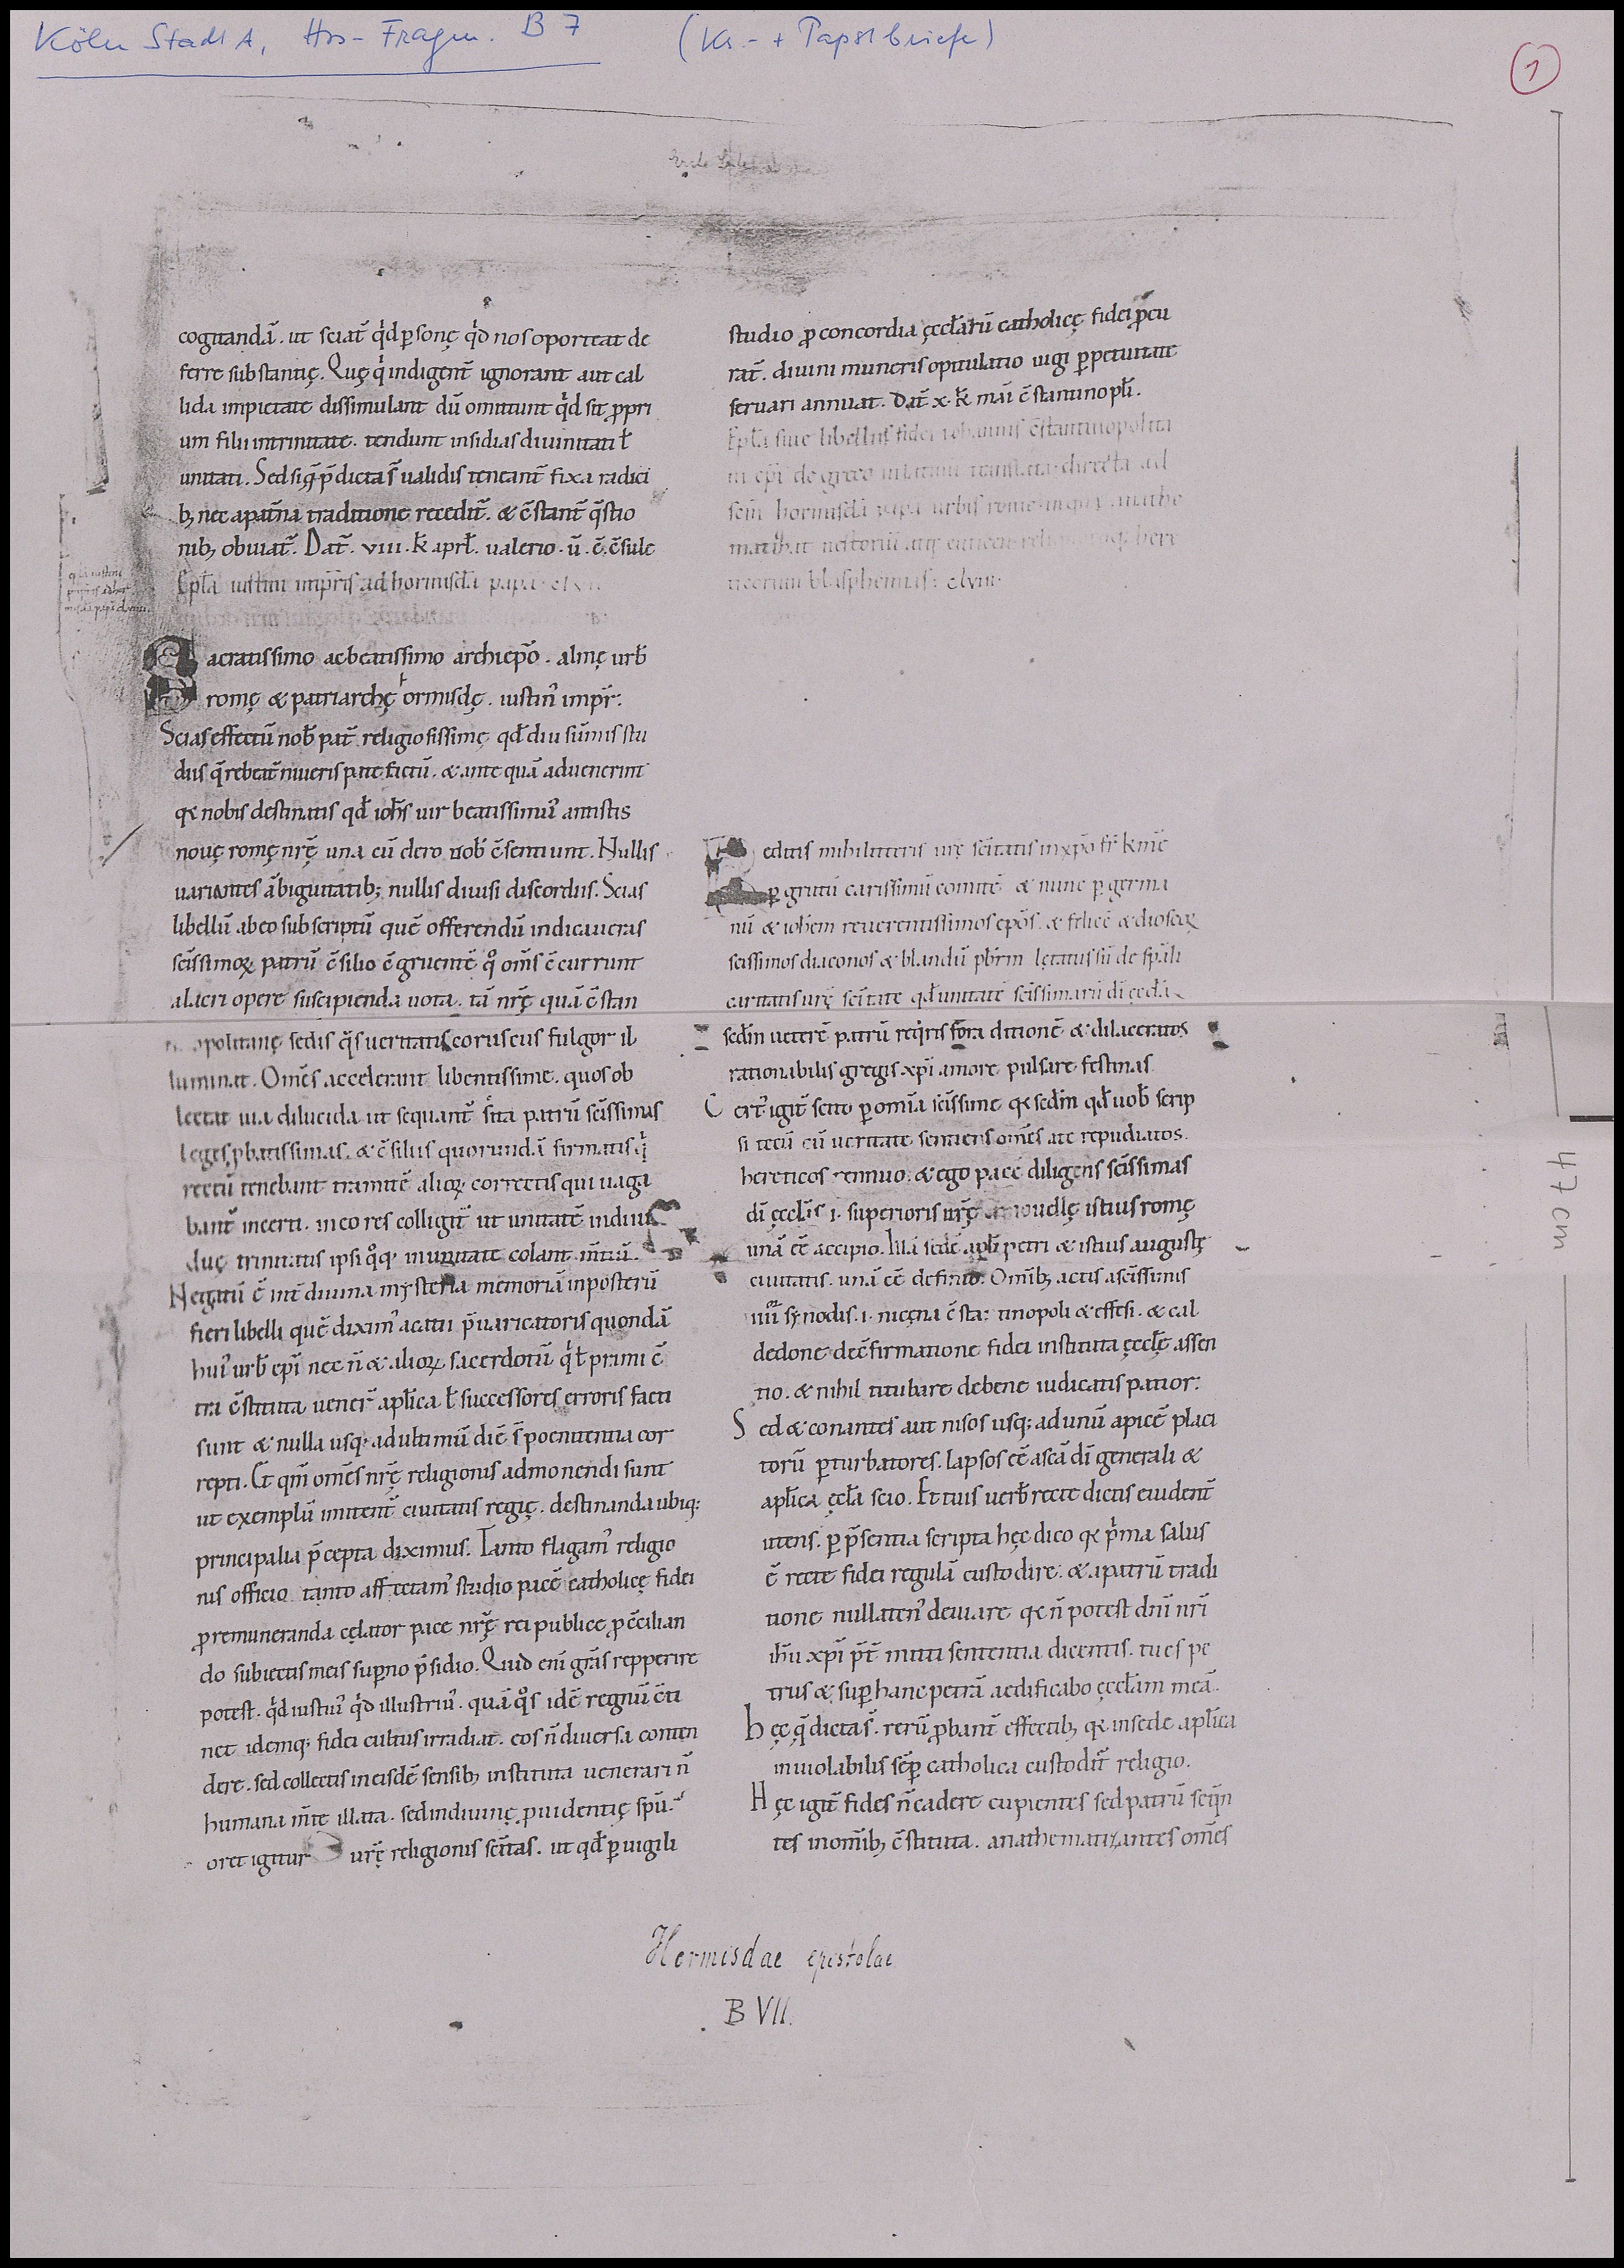 Köln Stadt A, Hss-Fragm. B 7 (Ks.- + Papstbriefe)
1
cogitandā. ut sciat̄ qͥd p̱sonę qͥd nos oporteat de
ferre substantię. Quę qͥ indigent̄ ignorant aut cal
lida impietate dissimulant dū omittunt qͥd sit ꝓpri
um filii intrinitate. tendunt insidias diuinitati ł
unitati. Sed si q̄ p̄dicta s̄ ualidis teneant̄ fixa radici
bꝫ nec apat̄na traditione recedit̄. & c̄stant̄ q̄stio
nibꝫ obuiat̄. Dat̄. viii. k̄ apr̄l. ualerio. ū. c̄. c̄sule
Epl̄a iustini imp̄ris ad hormisdā papā. clv
acratissimo ac beatissimo archiep̄o. almę urb̄
romę & patriarchę ormisdę. iustin᾿ imp̄r.
Scias effectū nob̄ pat̄ religiosissime qd̄ diu sūmis stu
diis q̄rebat̄ niueris patefictū. & ante quā aduenerint
qꝫ nobis destinatis qd̄ ioh̄s uir beatissim᾿ antistis
nouę romę nr̄ę una cū clero uob̄ c̄sentiunt. Nullis
uariantes ābiguitatibꝫ nullis diuisi discordiis. Scias
libellū ab eo subscriptū quē offerendū indicaueras
sc̄issimoꝝ patrū c̄silio c̄gruentē q̊ om̄s c̄currunt
alacri opere suscipienda uota. tā nr̄ę quā c̄stan
opolitanę sedis q̊s ueritatis coruscus fulgor il
luminat. Om̄es accelerant libentissime. quos ob
lectat uia dilucida ut sequant̄ sīta patrū sc̄issimas
leges ꝓbatissimas. & c̄siliis quorundā firmatis qͥ
rectū tenebant tramitē alioꝝ correctis qui uaga
bant̄ incerti. in eo res colligit̄ ut unitatē indiui
duę trinitatis ipsi q̊qꝫ inunitate colant m̄tiū.
Negatū c̄ int̄ diuina mysteria memoriā inposterū
fieri libelli quē dixim᾿ acatii p̄uaricatoris quondā
hui᾿ urb̄ ep̄i nec n̄ & alioꝝ sacerdotū qͥ ł primi c̄
tra c̄stituta uener̄ apl̄ica ł successores erroris facti
sunt & nulla usqꝫ ad ultimū diē s̄ poenitentia cor
repti. Et qm̄ om̄es nr̄ę religionis admonendi sunt
ut exemplū imitent̄ ciuitatis regię. destinanda ubiqꝫ
principalia p̄cepta diximus. Tanto flagam᾿ religio
nis officio. tanto affectam᾿ studio pacē catholicę fidei
ꝓ remuneranda cęlator pace nr̄ę rei publice ꝓ c̄cilian
do subiectis meis sup̱no p̄sidio. Quid eni gr̄as repperire
potest. qͥd iusti᾿ qͥd illustri᾿. quā q̊s idē regnū c̄ti
net idemqꝫ fidei cultus irradiat. eos n̄ diuersa conten
dere. sed collectis in eisdē sensibꝫ instituta uenerari n̄
humana m̄te illata. sed indiuinę ꝓuidentię sp̄u.
oret igitur urę̄ religionis sc̄itas. ut qd̄ p̱uigili
studio ꝓ concordia ęccl̄arū catholicę fidei ꝓcu
rat̄. diuini muneris opitulatio iugi p̱petuitate
seruari annuat. Dat̄ x. k̄ mai c̄stantinopl̄.
Epl̄a siue libellus fidei iohannis c̄stantinopolita
ni ep̄i de greco inlatinū translata directa ad
sc̄m hormisdā papā urbis rome in qua anathe
matiẕat nestoriū atqꝫ euticen reliquorūqꝫ here
ticorum blasphemias. clviii.
edditis mihi litteris urę̄ sc̄itatis inxp̄o fr̄ k̄mē
p̱ gratū carissimū comitē & nunc p̱ germa
nū & ioh̄em reuerentissimos ep̄os. & felicē & dioscoꝝ
sc̄issimos diaconos & blandū p̄brm lętatus sū de sp̄ali
caritatis urę̄ sc̄itate qd̄ unitatē sc̄issimarū dī ęccl̄aꝝ
sedm̄ ueterē patrū reqͥris tra ditionē & dilaceratos
rationabilis gregis xp̄i amore pulsare festinas
Cert᾿ igit̄ scito p̱ om̄ia sc̄issime qꝫ sedm̄ qd̄ uob̄ scrip
si tecū cū ueritate sentiens om̄es ate repudiatos
hereticos rennuo. & ego pacē diligens sc̄issimas
dī ęccl̄is i. superioris urę̄ nouellę istius romę
unā c̄e accipio. Illā sedē apl̄i petri & istius augustę
ciuitatis. unā c̄e definio. Om̄ibꝫ actis a sc̄issimis
iiii synodis. i. nicęna c̄stantinopoli & effesi. & cal
cedone de c̄firmatione fidei instituta ęccl̄ę assen
tio. & nihil titubare debene iudicatis patior.
Sed & conantes aut nisos usqꝫ ad unū apicē placi
torū p̱turbatores. lapsos c̄e a sc̄a dī generali &
apl̄ica ęccl̄a scio. Et tuis uerb̄ recte dictis euident̄
utens. p̱ p̄sentia scripta hęc dico qꝫ pͥma salus
c̄ recte fidei regulā custodire. & a patrū tradi
tione nullaten᾿ deuiare qꝫ n̄ potest dn̄i nr̄i
ih̄u xp̄i p̄t̄ mitti sententia dicentis. tu es pe
trus & sup̱ hanc petrā aedificabo ęccl̄am meā.
hęc q̄ dicta s̄. rerū ꝓbant̄ effectibꝫ qꝫ in sede apl̄ica
inuiolabilis sēp̱ catholica custodit̄ religio.
Hęc igit̄ fides n̄ cadere cupientes sed patrū seq̄n
tes in om̄ibꝫ c̄stituta. anathematiẕantes om̄es
Hormisdae epistolae
B VII.
47 cm